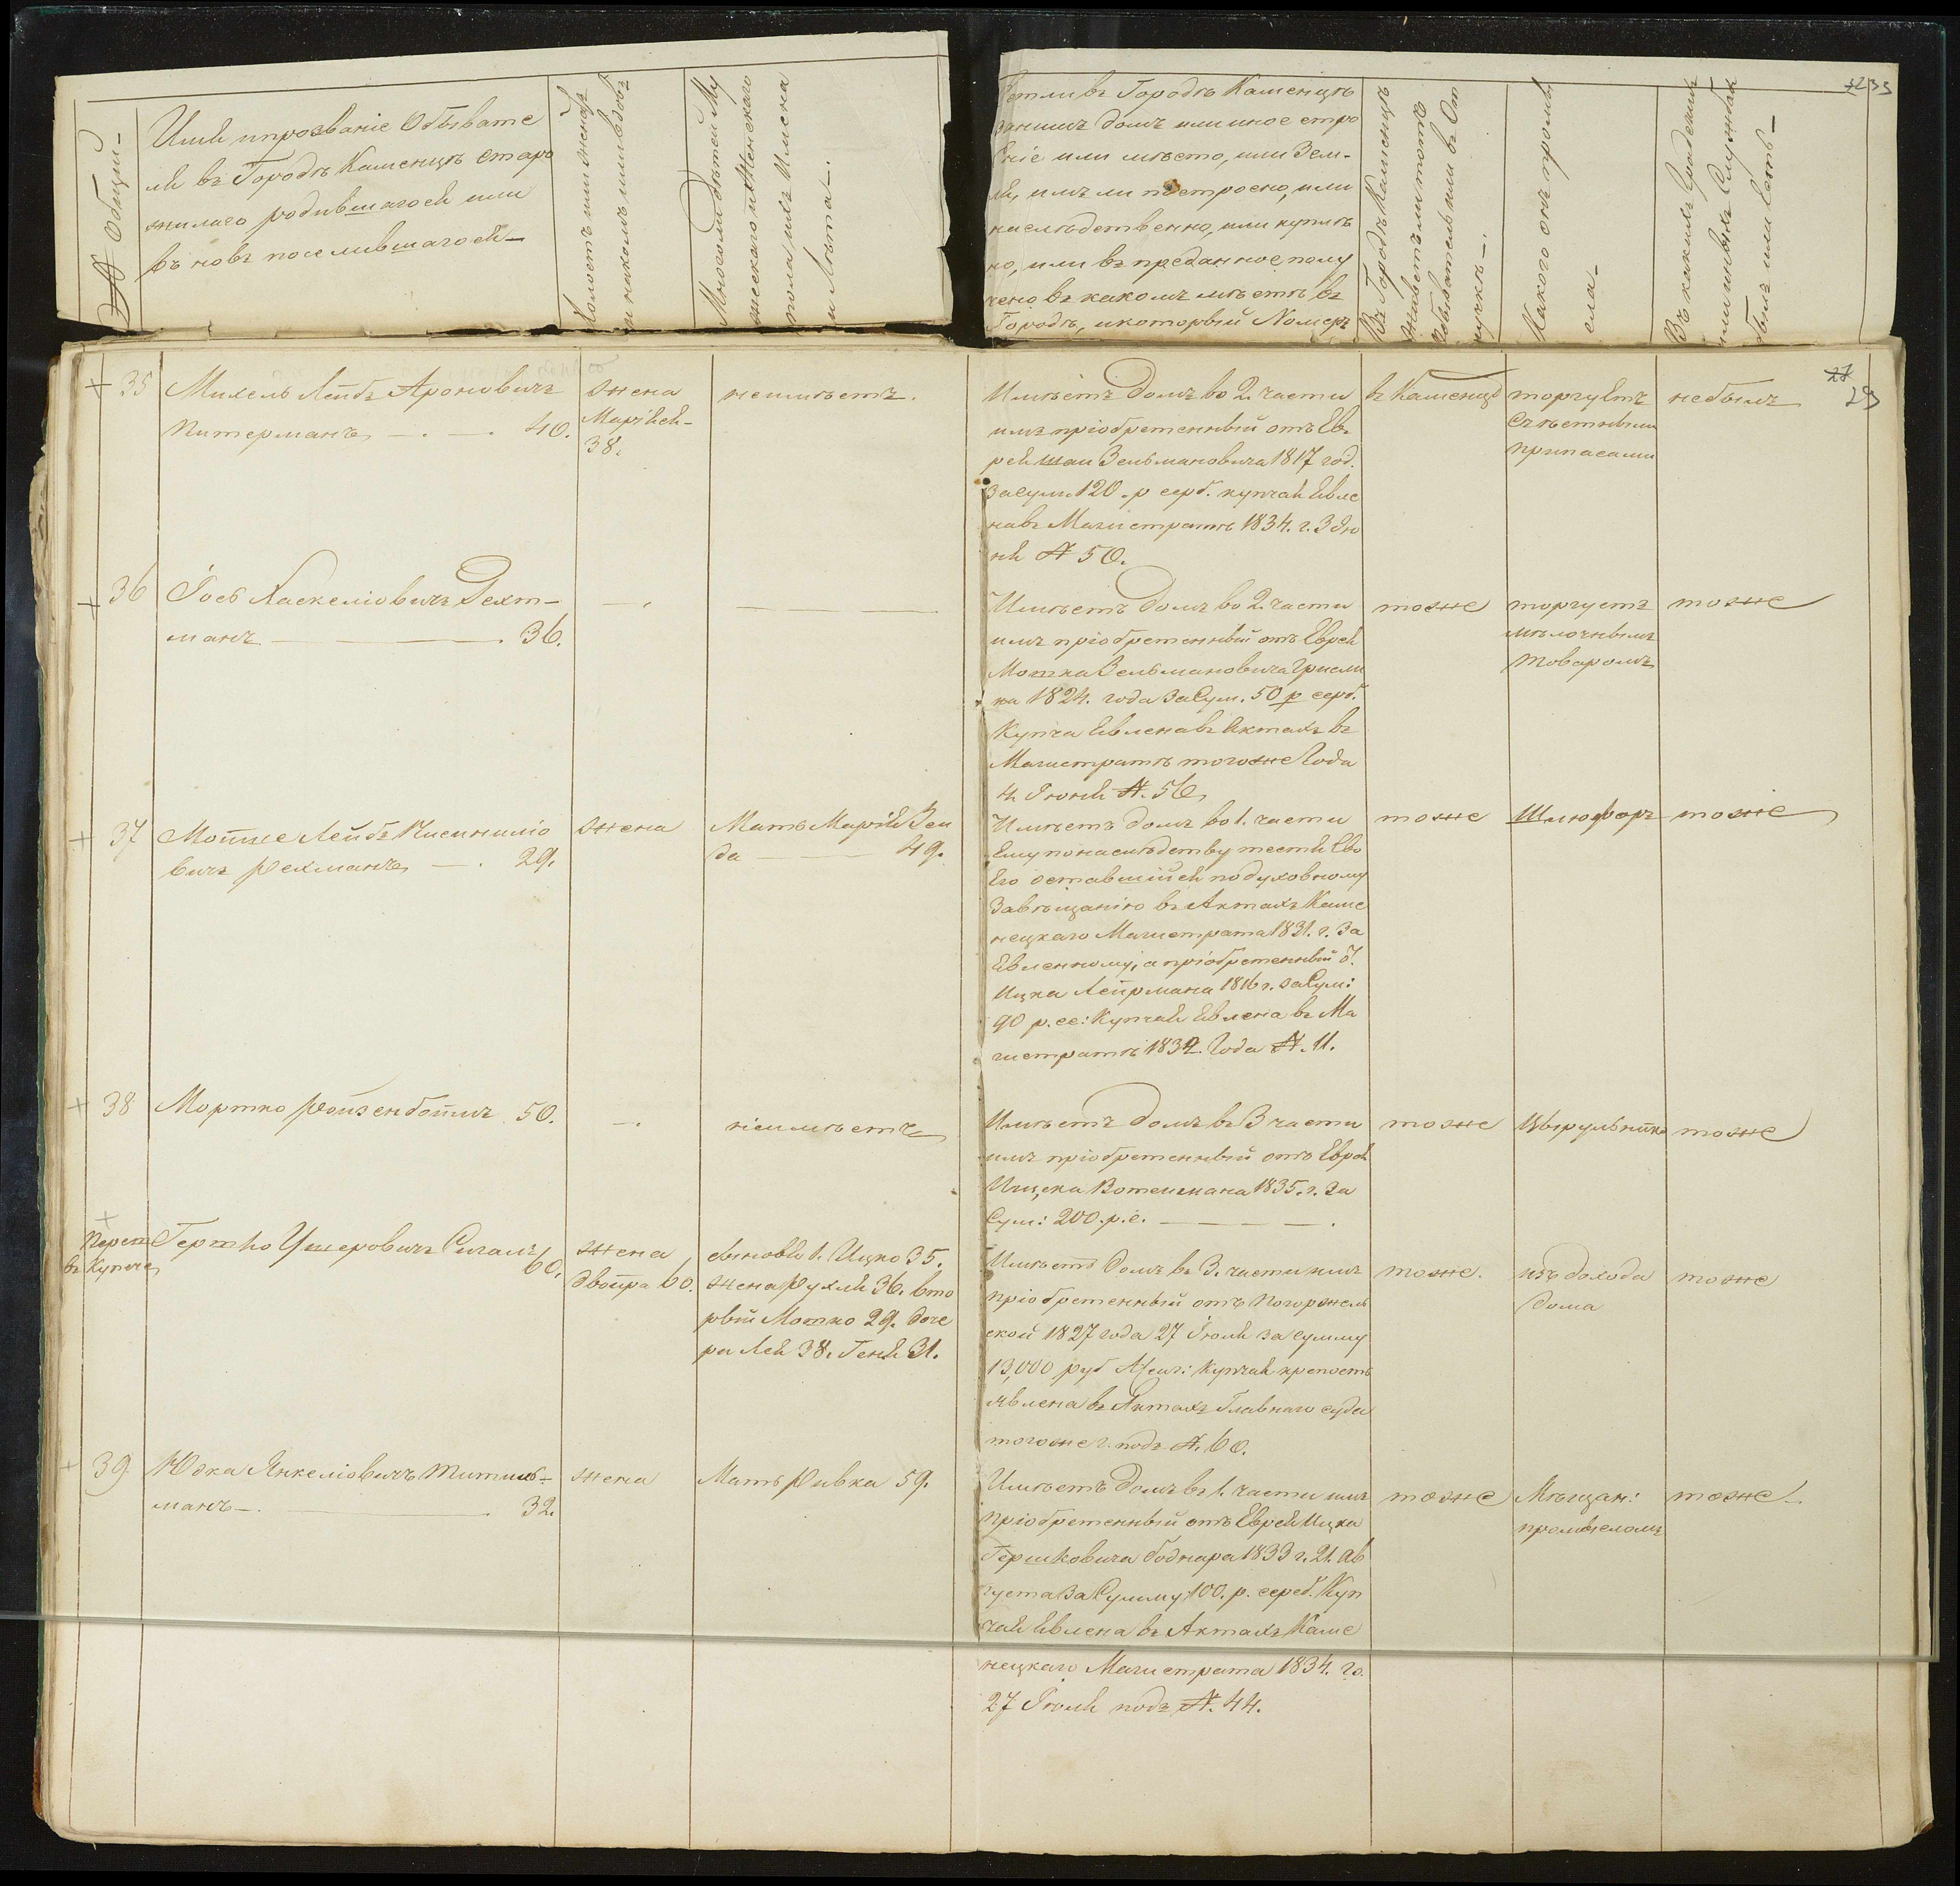 № Общий
Имя и прозвание Обывате
ля въ Городѣ Каменцѣ старо
жилаго родившагося или
въ новѣ поселившагося
Холостъ или женатъ
и на комъ или вдовъ
Много ли дѣтей Му
жескаго и Женскаго
пола, ихъ Имена
и Лѣта.
Есть ли въ Городѣ Каменцѣ
за нимъ домъ или иное стро
еніе или мѣсто, или Зем-
ля, имъ ли построено, или
наслѣдственно, или купле
но, или въ преданное полу
чено въ какомъ мѣстѣ въ
Городѣ, и который Номеръ
Въ Городѣ Каменцѣ
живетъ ли тотъ
обыватель или въ От
лучкѣ.
Какого онъ промы
сла
Въ какихъ Градскихъ
или иныхъ Службахъ
былъ или есть
35 Михель Лейбъ Ароновичъ
Питерманъ 40.
жена
Маріясъ
38.
неимѣетъ.
Имѣетъ домъ во 2. части
имъ пріобретенный отъ Ев-
рея Шаи Зельмановича 1817 год.
за Сум. 120. р сереб. купчая Явле
на въ Магистратѣ 1834. г. 3 Ію
ня № 50.
в Каменцѣ
торгуетъ
Съѣстными
припасами
небылъ
29
36 Іось Хаскеліовичъ Дехт-
манъ 36.
Имѣетъ домъ во 2. части
имъ пріобретенный отъ Еврея
Мошка Зельмановича
1824. года за Сум. 50 р сереб.
Купча Явлена въ Актахъ въ
Магистратѣ тогоже Года
4 Іюня № 56
тоже
торгуетъ
мѣлочнымъ
товаромъ
тоже
37 Мошке Лейбъ
вичъ Рехманъ 29.
жена
Мать Марія Зел
да 49.
Имѣетъ домъ во 1. части
Ему по наслѣдству
Его оставшійся по духовному
Завѣщанію въ Актахъ Каме
нецкаго Магистрата 1831. г. за
Явленному, а пріобретенный
Ицка Лейрмана 1816 г. за Сум:
90 р. се: Купчая Явлена въ Ма
гистратѣ 1832. Года № 11.
тоже
Шлюфаръ
тоже
38 Мортко Ройзенбоймъ 50.
неимѣетъ
Имѣетъ домъ въ 3 части
имъ пріобретенный отъ Еврея
1835. г. за
Сум: 200. р. с.
тоже
Цырульникъ
тоже
Переш
въ Купче
Гершко Ушеровичъ Сигалъ
60.
жена
Двойра 60.
Сыновья 1. Ицко 35.
жена Рухля 36. Вто
рый Мотко 29. доче
ра Лея 38. Геня 31.
Имѣетъ домъ въ 3. части имъ
пріобретенный отъ Погоржель
ской 1827 года 27 Іюля за сумму
13,000 руб Асиг: купчая крепость
явлена въ Актахъ Главнаго суда
тогоже г. подъ №. 60.
тоже.
изъ дохода
дома
тоже
39 Юдка Янкеліовичъ Титиль-
манъ 32.
жена
Мать Ривка 59.
Имѣетъ домъ въ 1. части имъ
пріобретенный отъ Еврея Ицка
Гершковича боднара 1833 г. 21. Ав
густа За Сумму 100. р. сереб. Куп
чая Явлена въ Актахъ Каме
нецкаго Магистрата 1834. го.
27 Іюля подъ №. 44.
тоже
Мѣщан:
промысломъ
тоже